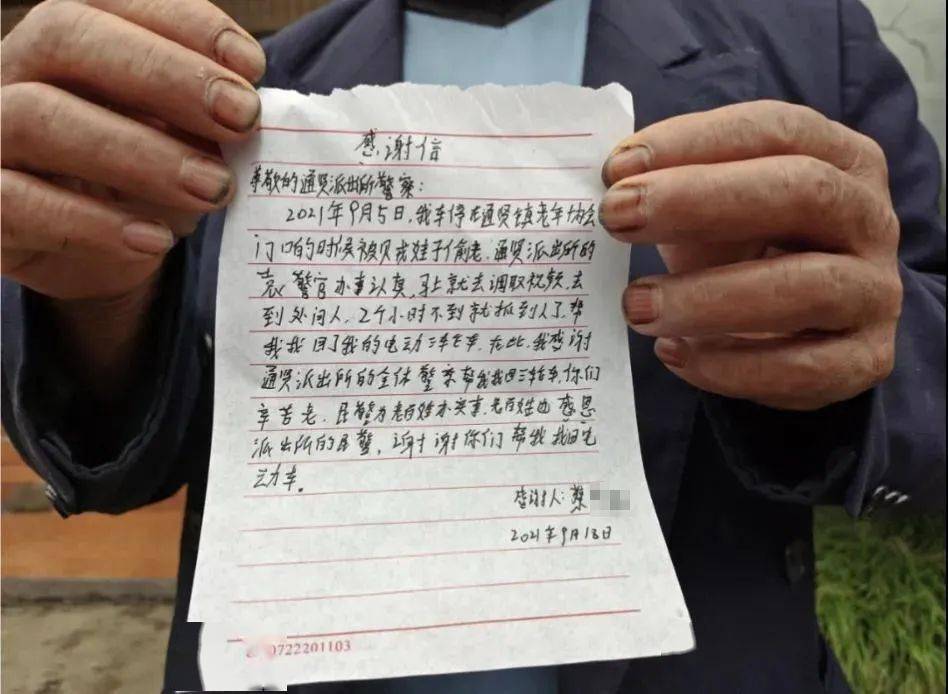 感谢信
尊敬的通贤派出所警察：
2021年9月5日，我车停在通贤镇老年协会
门口的时候被贝戎娃子偷老．通贤派出所的
袁警官办事认真，马上就去调取视频，去
到处问人，2个小时不到就抓到人了，帮
我找回了我的电动三轮车．在此，我感谢
通贤派出所的全体警察帮我找回三轮车，你们
辛苦老．民警为老百姓办实事，老百姓也感恩
派出所的民警，谢谢你们帮我找回电
动车。
感谢人：蔡
2021年9月13日
0722201103